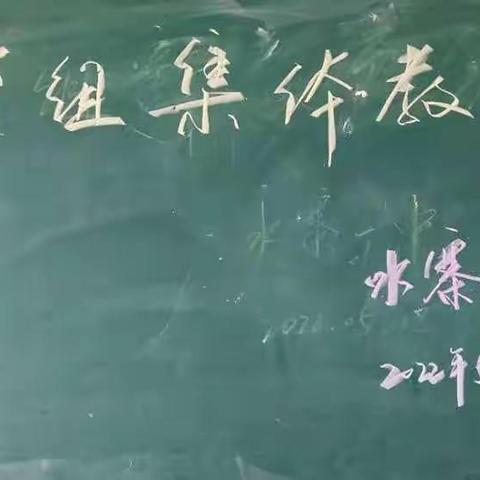 组集体教
水寨
2022年5